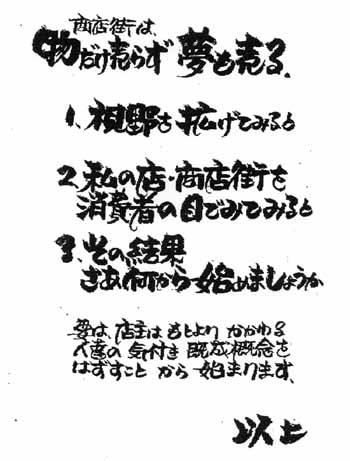 商店街は、
物だけ売らず 夢も売る.
1、視野を拡げてみると
2.私の店・商店街を
消費者の目でみてみると
3.その結果
さあ何から始めましょうか
要は、店主はもとより かかわる
人達の 気付き 既成概念を
はずすこと から 始まります、
以上